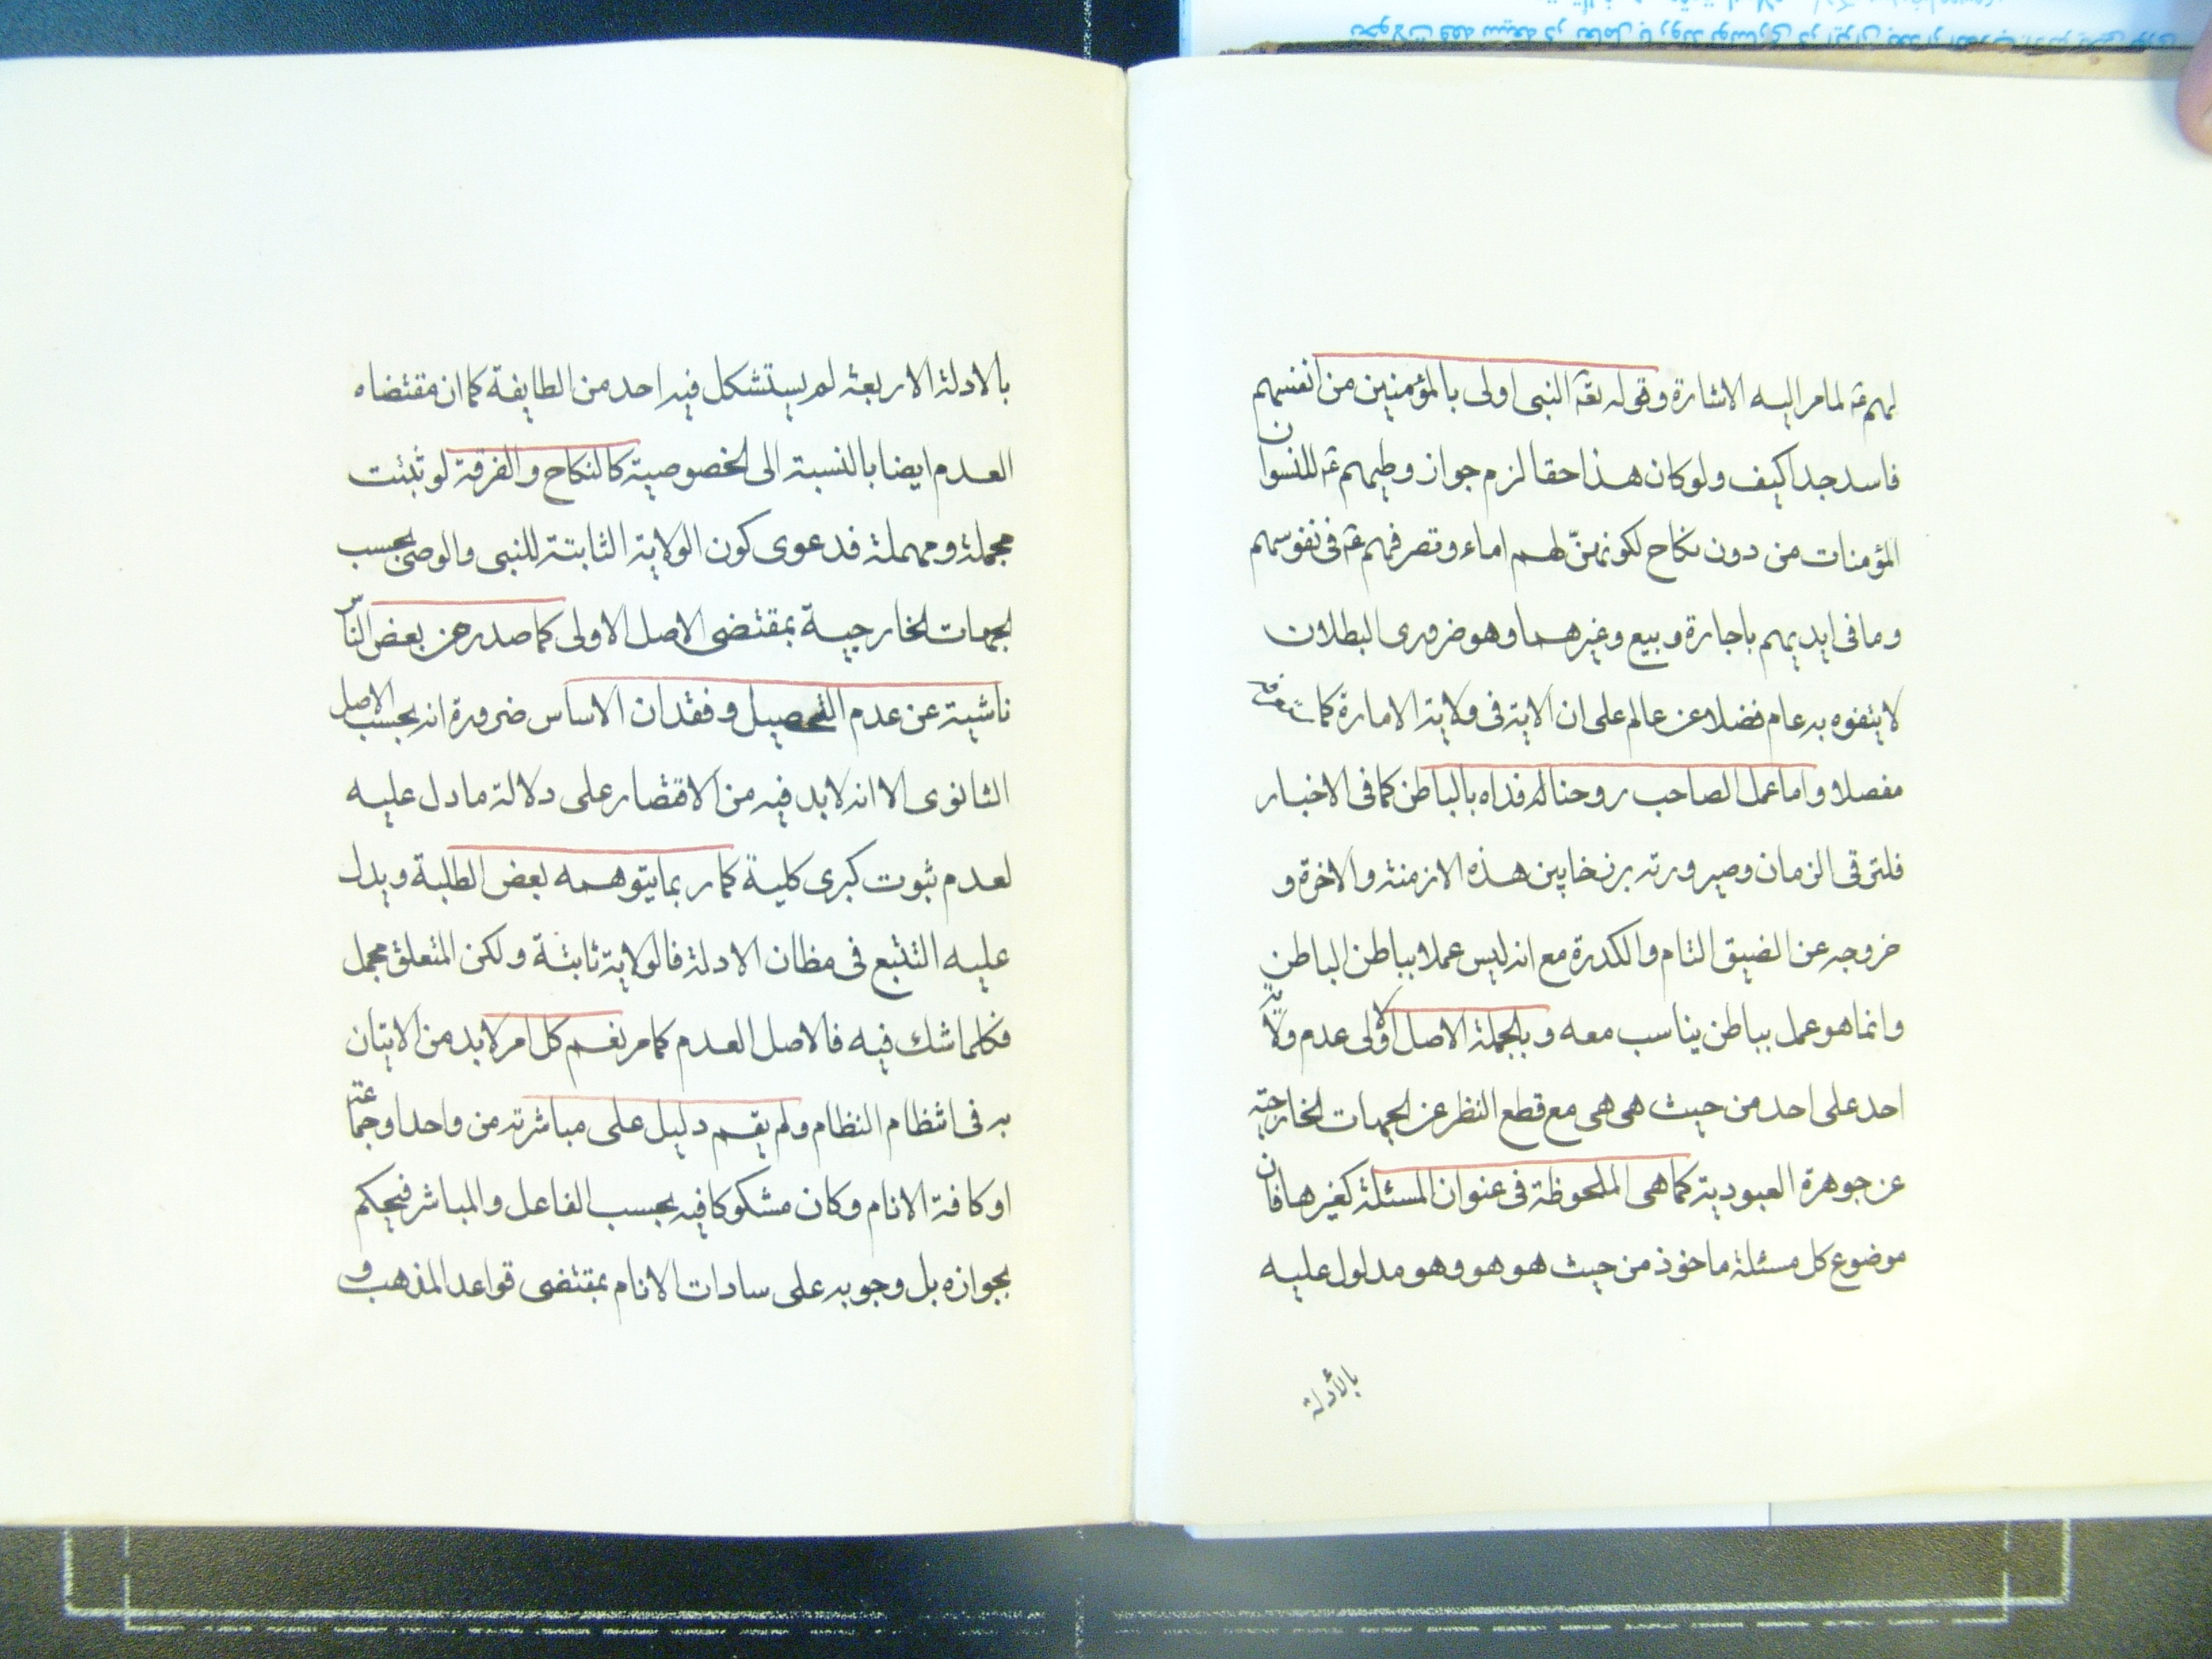 لهم ع لما مر اليه الاشارة وقوله تعه النبى اولى بالمؤمنين من انفسهم
فاسد جدا كيف ولو كان هذا حقا لزم جواز وطيهم ع للنسوان
المؤمنات من دون نكاح لكونهنّ لهم اماء وتصرفهم ع فى نفوسهم
وما فى ايديهم باجارة وبيع وغيرهما وهو ضرورى البطلان
لا يتفوه به عام فضلا عن عالم على ان الاية فى ولاية الامارة كما ستعرفه
مفصلا واما عمل الصاحب روحنا له فداه بالباطن كما فى الاخبار
فلترقى الزمان وصيرورته برزخا بين هذه الازمنة والاخرة و
خروجه عن الضيق التام والكدرة مع انه ليس عملا بباطن الباطن
وانما هو عمل بباطن يناسب معه وبالجملة الاصل الاولى عدم ولاية
احد على احد من حيث هى هى مع قطع النظر عن الجهات الخارجية
عن جوهرة العبودية كما هى الملحوظة فى عنوان المسئلة كغيرها فان
موضوع كل مسئلة ماخوذ من حيث هو هو وهو مدلول عليه
بالأدلة
بالادلة الاربعة لم يستشكل فيه احد من الطايفة كما ان مقتضاه
العدم ايضا بالنسبة الى الخصوصية كالنكاح والفرقة لو ثبتت
مجملة ومهملة فدعوى كون الولاية الثابتة للنبى والوصى بحسب
الجهات الخارجية بمقتضى الاصل الاولى كما صدر عن بعض الناس
ناشية عن عدم التحصيل وفقدان الاساس ضرورة انه بحسب الاصل
الثانوى الا انه لا بد فيه من الاقتصار على دلالة ما دل عليه
لعدم ثبوت كبرى كلية كما ربما يتوهمه بعض الطلبة ويدل
عليه التتبع فى مظان الادلة فالولاية ثابتة ولكن المتعلق مجمل
فكلما شك فيه فالاصل العدم كما مر نعم كل امر لا بد من الاتيان
به فى انتظام النظام ولم يقم دليل على مباشرته من واحد او جماعة
او كافة الانام وكان مشكوكا فيه بحسب الفاعل والمباشر فيحكم
بجوازه بل وجوبه على سادات الانام بمقتضى قواعد المذهب و